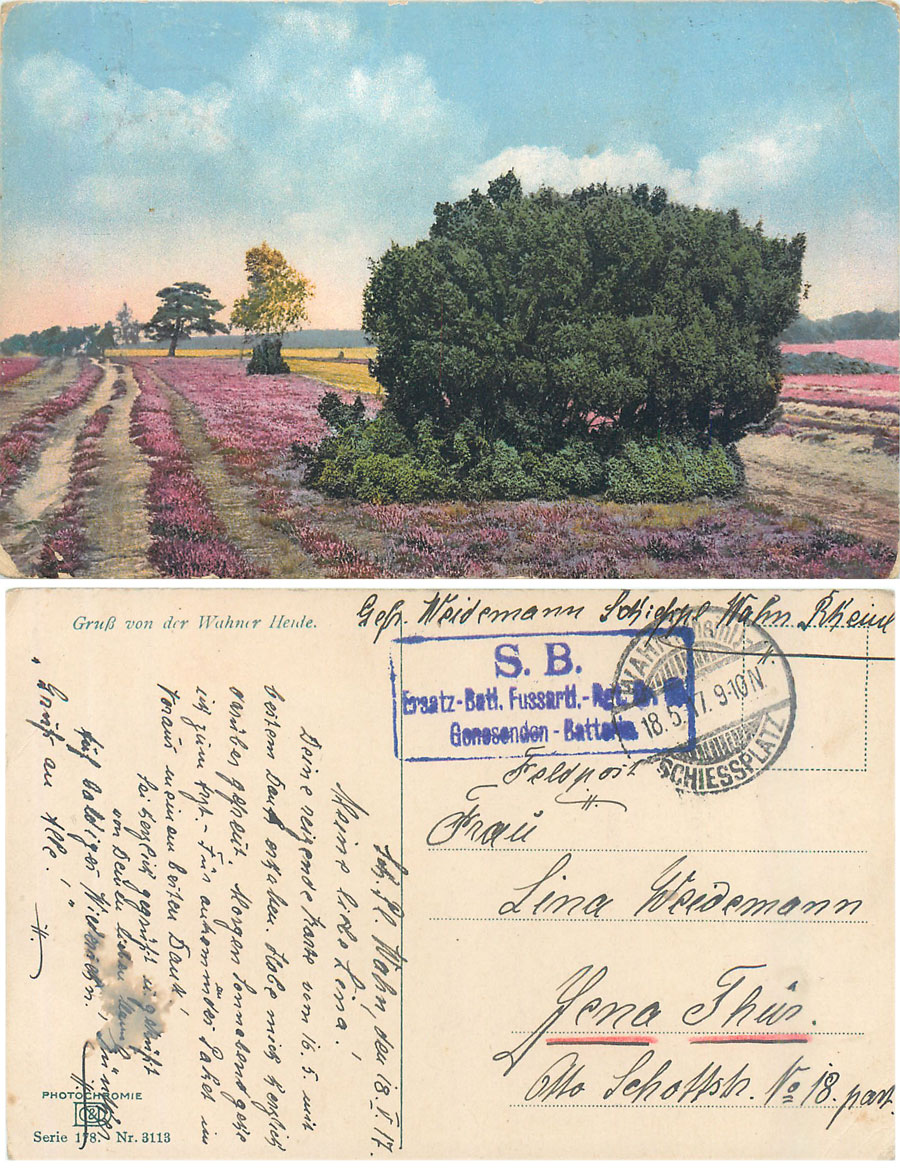 Gruß von der Wahner Heide.
Gefr. Weidemann Schießpl Wahn Rheinl
S. B.
Ersatz-Batl. Fussartl.-
Genesenden-Batterie
WAHN
18.5.17. 9-10 N.
SCHIESSPLATZ
Feldpost
Frau
Lina Weidemann
Jena Thür.
Otto Schottstr. No 18. part.
Sch. Pl. Wahn, den 18.V.17.
Meine liebe Lina!
Deine reizende Karte vom 16.5. mit
bestem Dank erhalten. Habe mich herzlich
darüber gefreut. Morgen Sonnabend gehe
ich zum Für ankommendes Paket im
Voraus meinen besten Dank!
Sei herzlich gegrüßt u. geküßt
von Deinem lieben
Auf baldiges Wiedersehn.
„Gruß an Alle.!"
PHOTOCHROMIE
Serie 178. Nr. 3113